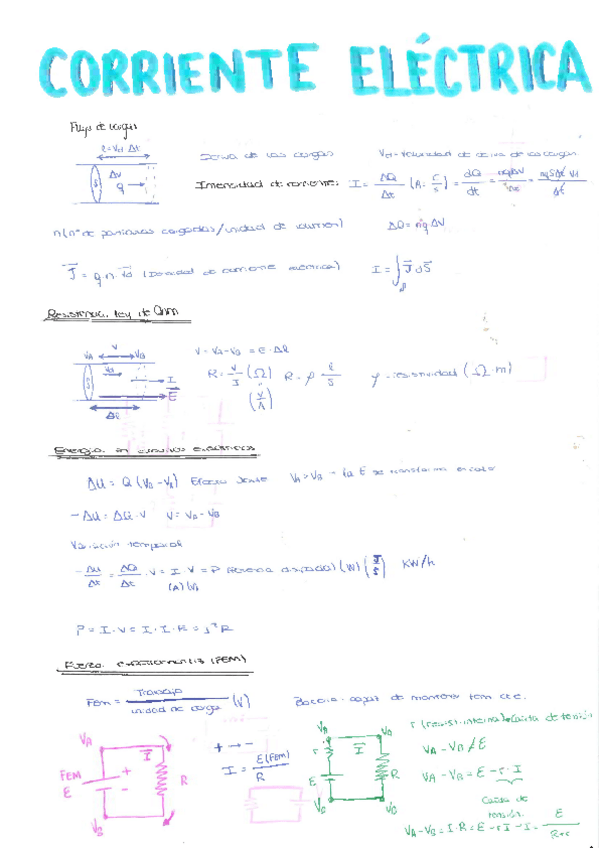 CORRIENTE ELÉCTRICA
Flujo de cargas
l = Vd Δt
Δv
q
S
Deriva de las cargas
Vd = Velocidad de deriva de las cargas
Intensidad de corriente: I = ΔQ/Δt (A: C/s) = dQ/dt =
n (nº de partículas cargadas/unidad de volumen)
ΔQ = nq ΔV
J = q·n·Vd (Densidad de corriente eléctrica)
I = ∫ J dS
Resistencia. Ley de Ohm
V
VA VB
S
I
E
Δl
V = VA - VB = E · Δl
R = V/I (Ω) R = ρ l/S ρ = resistividad (Ω·m)
(V/A)
Energía en circuitos eléctricos
ΔU = Q (VB - VA) Efecto Joule VA > VB → la E se transforma en calor
-ΔU = ΔQ · V V = VA - VB
Variación temporal
-ΔU/Δt = ΔQ/Δt · V = I · V = P (Potencia disipada) (W) (J/s) KW/h
(A) (V)
P = I · V = I · I · R = I² R
Fuerza electromotriz (FEM)
FEM = Trabajo/unidad de carga (V)
Batería: capaz de mantener fem cte.
VA
I
FEM
E
+
-
R
VB
+ → -
I = E(FEM)/R
VA
VA
r
I
E
R
VB
VB
r (resist. interna) → Caída de tensión
VA - VB ≠ E
VA - VB = E - r · I
Caída de
tensión
VA - VB = I · R = E - rI → I = E/R+r